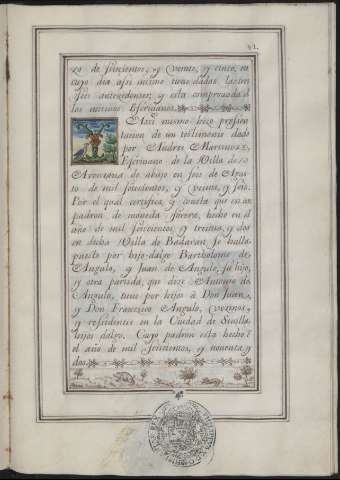 91.
ro de seiscientos, y veinte, y cinco, en
cuyo dia assi mismo tiene dadas las tres
fees antezedentes, y esta comprovada d
los mismos Escrivanos.
Assi mismo hizo presen
tacion de un testimonio dado
por Andres Martinez,
Escrivano de la Villa de
de abajo en seis de Agos
to de mil seiscientos, y veinte, y seis.
Por el qual certifica, y consta que en un
padron de moneda forera, hecho en el
año de mil seiscientos, y treinta, y dos
en dicha Villa de Badaran se halla
puesto por hijo-dalgo Bartholome de
Angulo, y Juan de Angulo, su hijo,
y otra partida, que dize Antonio de
Angulo, tiene por hijos à Don Juan,
y Don Francisco Angulo, vezinos,
y residentes en la Ciudad de Sevilla
hijos dalgo. Cuyo padron esta hecho
el año de mil seiscientos, y noventa, y
dos.